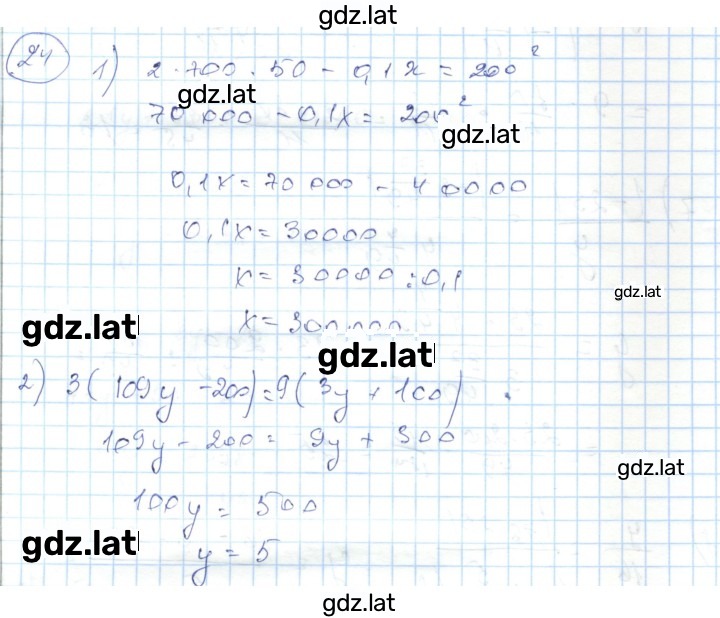 gdz.lat
24
1) 2·700·50 - 0,1x = 200²
gdz.lat
70 000 - 0,1x = 200²
gdz.lat
0,1x = 70 000 - 40000
0,1x = 30000
x = 30000 : 0,1
gdz.lat
x = 300 000
gdz.lat
gdz.lat
2) 3(109y - 200) = 9(3y + 100)
109y - 200 = 9y + 300
gdz.lat
100y = 500
gdz.lat
y = 5
gdz.lat